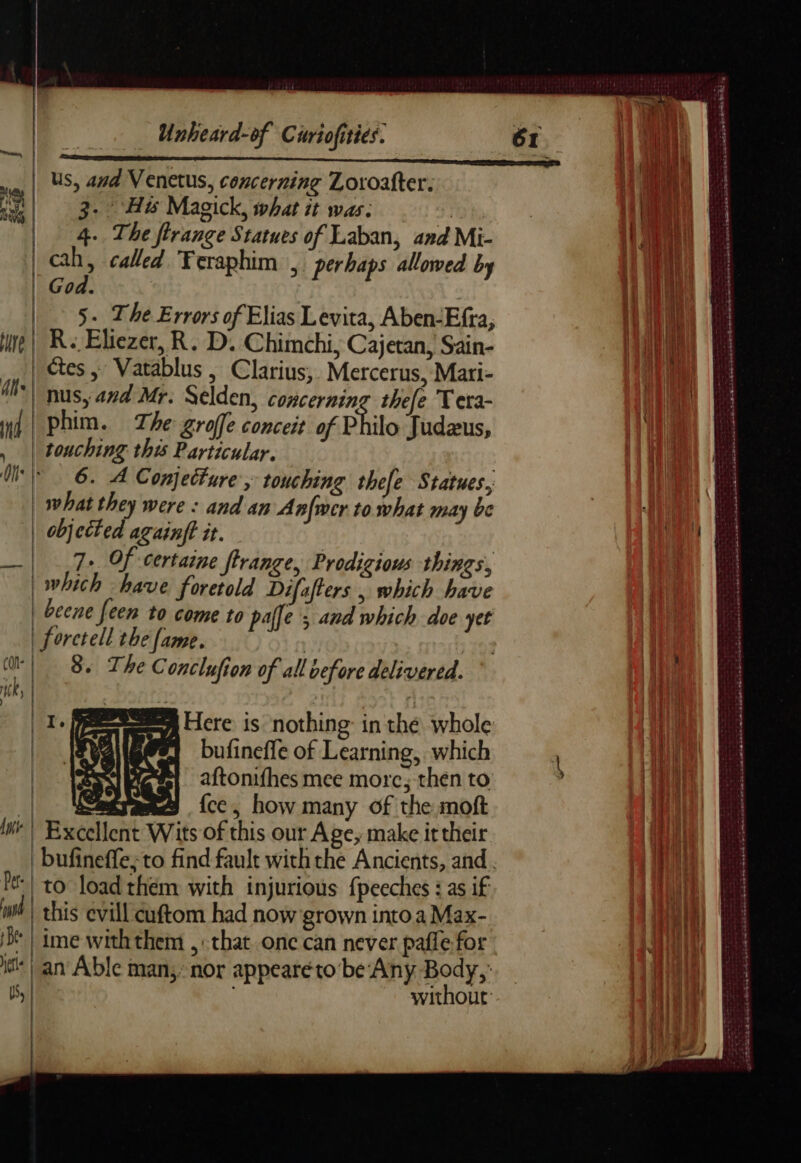 Unheard-of Curiosities. 61
us, and Venetus, concerning Zoroaſter.
3. His Magick, what it was.
4. The ſtrange Statues of Laban, and Mi-
cah, called Teraphim, perhaps allowed by
God.
5. The Errors of Elias Levita, Aben-Eſra,
R. Eliezer, R. D. Chimchi, Cajetan, Sain-
ctes, Vatablus, Clarius, Mercerus, Mari-
nus, and Mr. Selden, concerning theſe Tera-
phim. The groſſe conceit of Philo Judæus,
touching this Particular.
6. A Conjecture, touching theſe Statues,
what they were: and an Anſwer to what may be
objected againſt it.
7. Of certaine ſtrange, Prodigious things,
which have foretold Diſaſters, which have
beene ſeen to come to paſſe; and which doe yet
foretell the ſame.
8. The Concluſion of all before delivered.
1. THere is nothing in the whole
buſineſſe of Learning, which
aſtoniſhes mee more, then to
ſee, how many of the moſt
Excellent Wits of this our Age, make it their
buſineſſe, to find fault with the Ancients, and
to load them with injurious ſpeeches: as if
this evill cuſtom had now grown into a Max-
ime with them, that one can never paſſe for
an Able man, nor appeare to be Any Body,
without